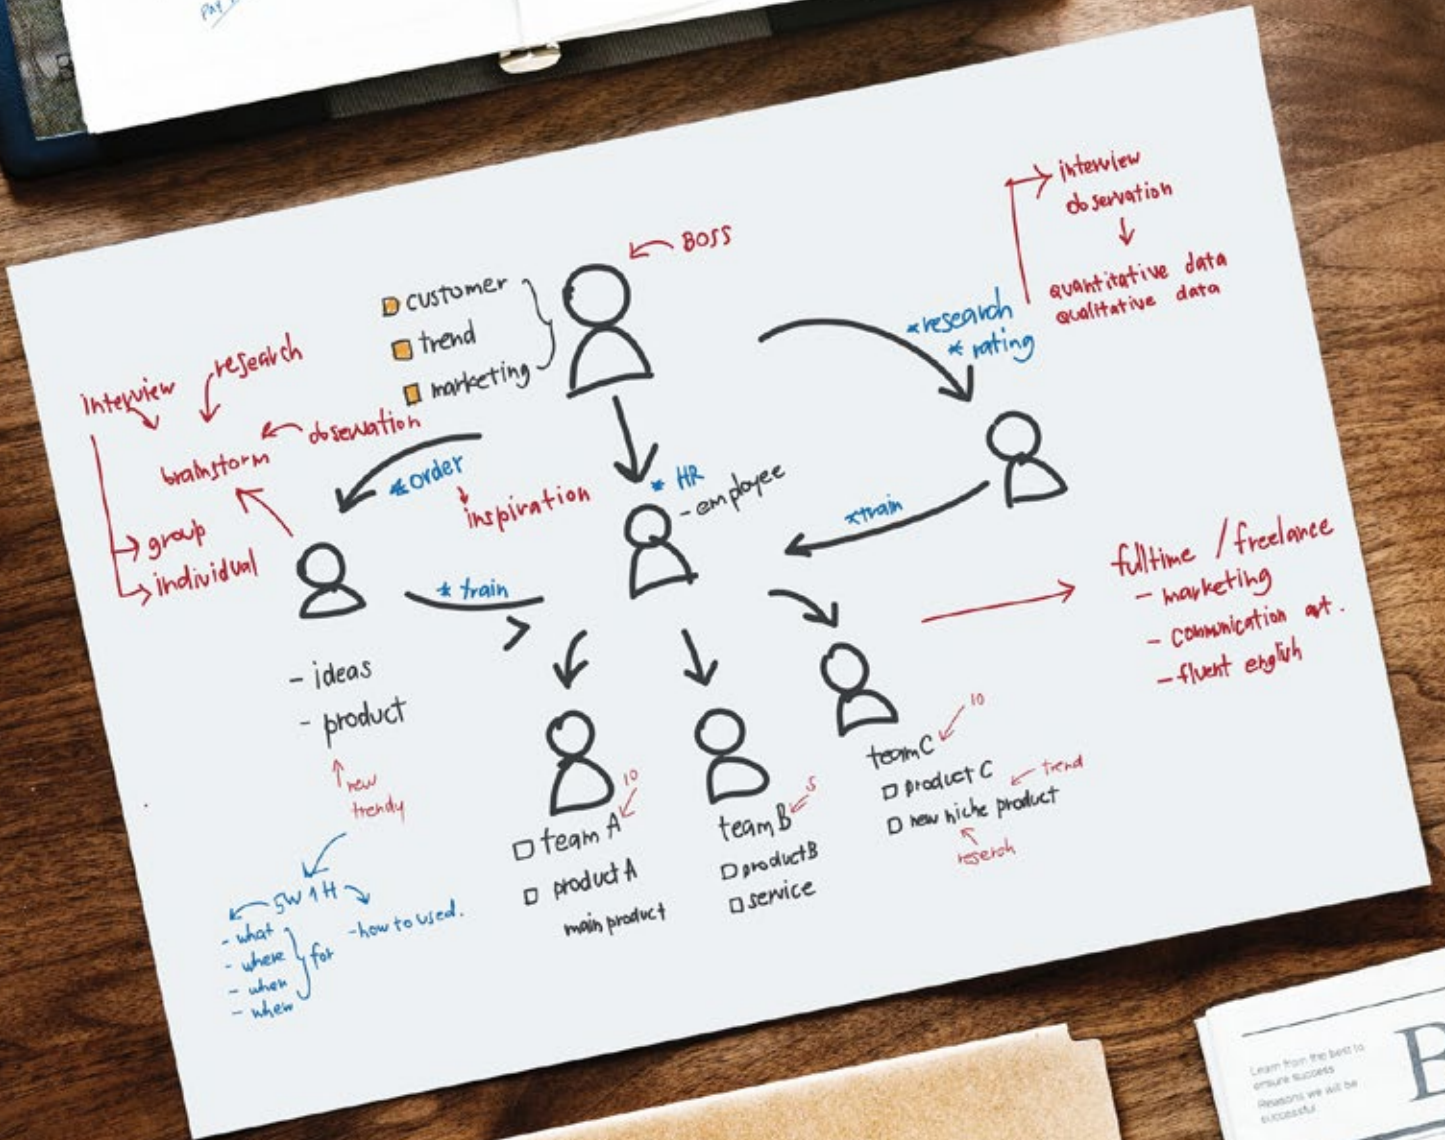 BOSS
customer
trend
marketing
interview
observation
quantitative data
qualitative data
*research
* rating
interview
research
observation
brainstorm
group
individual
*order
inspiration
* HR
- employee
*train
* train
fulltime / freelance
- marketing
- communication art.
- fluent english
- ideas
- product
new
trendy
5W1H
- what
- where
- when
- when
for
- how to used.
10
team A
product A
main product
5
team B
product B
service
10
team C
product C
trend
new niche product
reserch
Learn from the best to
ensure success
Reasons we will be
successful
B